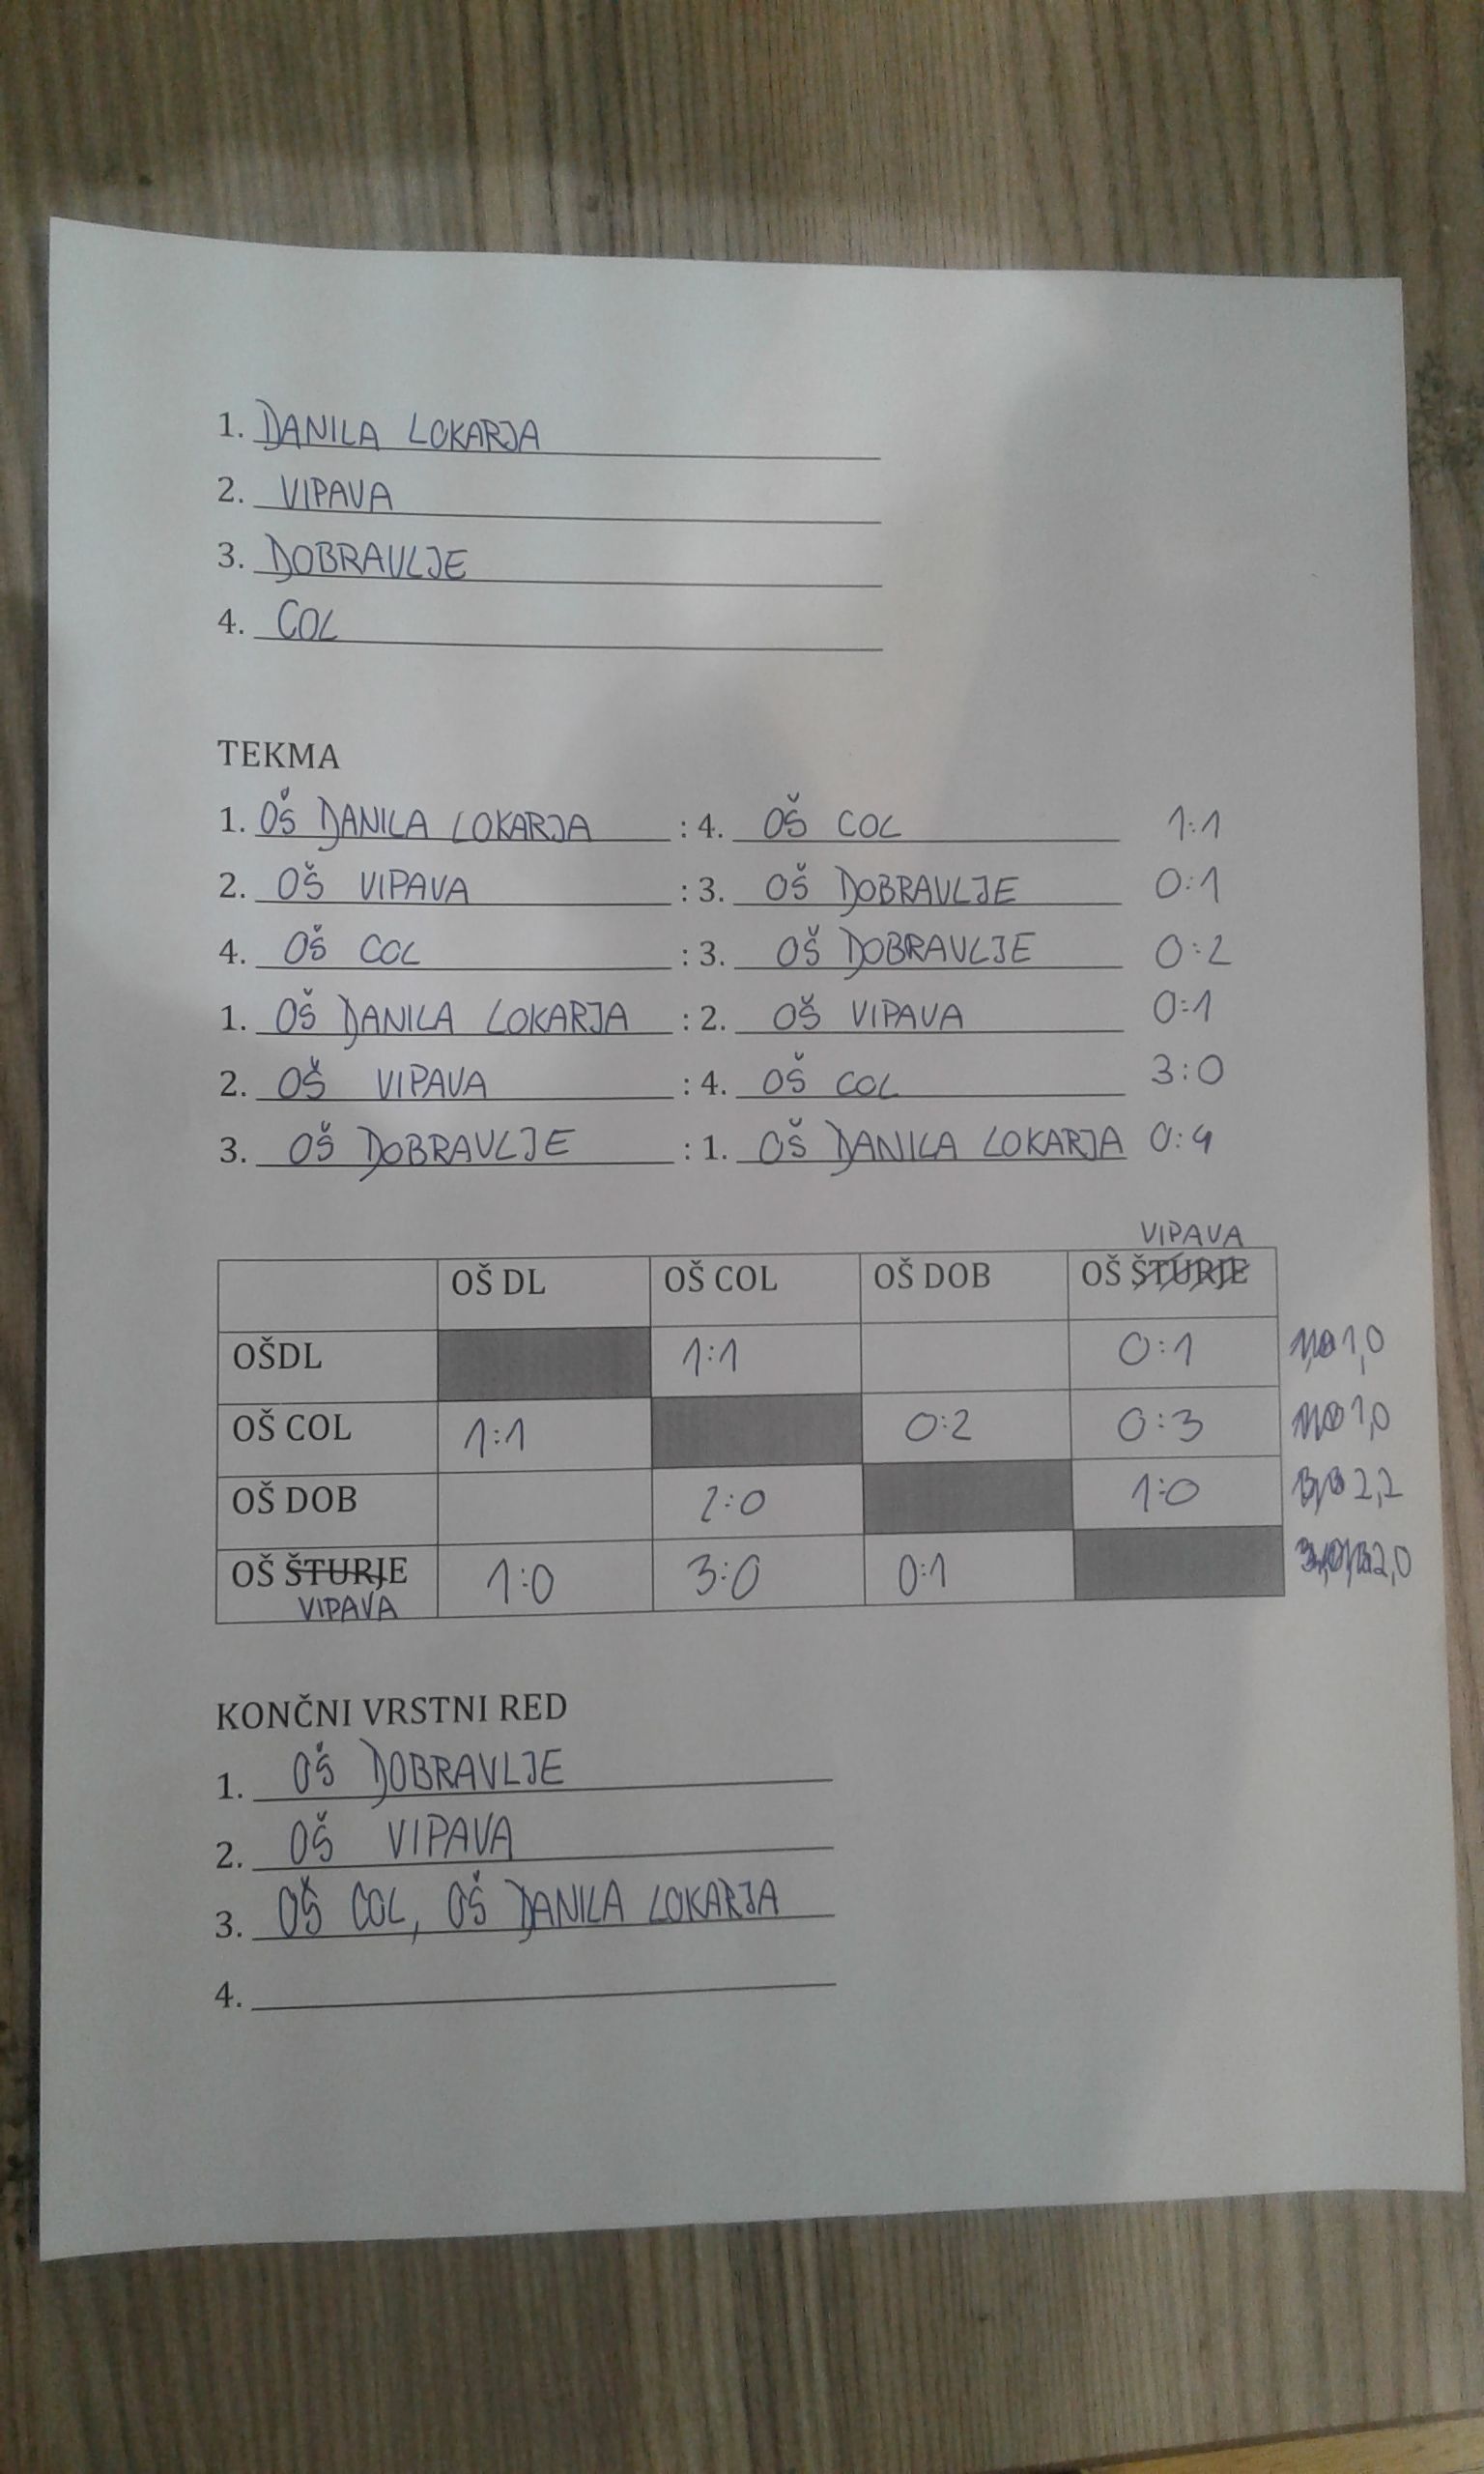 1. DANILA LOKARJA
2. VIPAVA
3. DOBRAVLJE
4. COL
TEKMA
1. OŠ DANILA LOKARJA : 4. OŠ COL 1:1
2. OŠ VIPAVA : 3. OŠ DOBRAVLJE 0:1
4. OŠ COL : 3. OŠ DOBRAVLJE 0:2
1. OŠ DANILA LOKARJA : 2. OŠ VIPAVA 0:1
2. OŠ VIPAVA : 4. OŠ COL 3:0
3. OŠ DOBRAVLJE : 1. OŠ DANILA LOKARJA 0:4
VIPAVA
OŠ DL OŠ COL OŠ DOB OŠ ŠTURJE
OŠDL 1:1 0:1 1,0
OŠ COL 1:1 0:2 0:3 1,0
OŠ DOB 2:0 1:0 2,2
OŠ ŠTURJE 1:0 3:0 0:1 2,0
VIPAVA
KONČNI VRSTNI RED
1. OŠ DOBRAVLJE
2. OŠ VIPAVA
3. OŠ COL, OŠ DANILA LOKARJA
4.